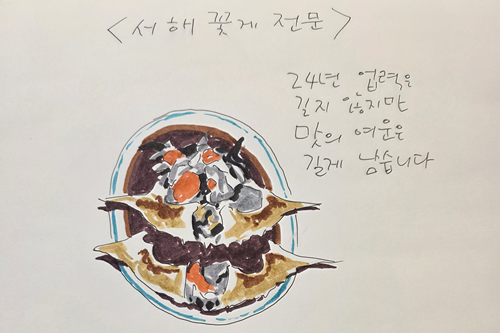 <서해 꽃게 전문>
24년 업력은
길지 않지만
맛의 여운은
길게 남습니다